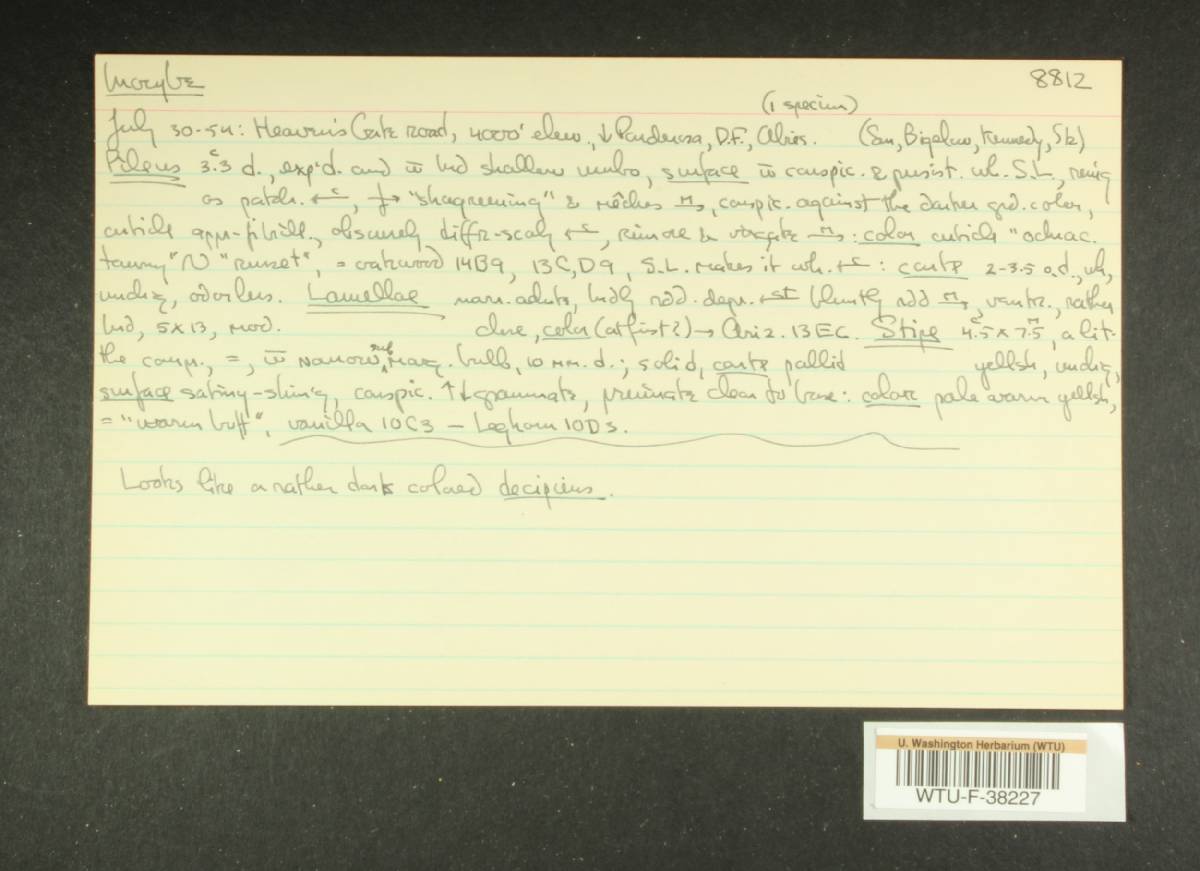 Inocybe 8812
(1 specim)
July 30-54: Heaven's Gate road, 4000' elev., ↓ Ponderosa, D.F., Abies. (Sm, Bigelow, Kennedy, Stz)
Pileus 3.3 d., exp'd. and w̄ brd shallow umbo, surface w̄ conspic. & persist. wh. S.L.,
as patch. ←c, "shagreening" & m→, conspic. against the darker grd. color,
cuticle appr-fibrill., obscurely diffr-scaly ←c, rimose & virgate m→: color cuticle "ochrac.
tawny" N "russet", = oakwood 14B9, 13C, D9, S.L. makes it wh. ←c: contx 2-3.5 o.d., wh,
undig, odorless. Lamellae narr. adnate, brdly rdd. depr. ←st bluntly rdd m→, ventr., rather
brd, 5 x 13, mod. close, color (at first?) → Ariz. 13EC. Stipe 4.5 x 7.5, a lit-
tle comp., =, w̄ narrow sub marg. bulb, 10 mm. d.; solid, contx pallid yellsh, undig,
surface satiny-shin'g, conspic. ↑↓ grammate, pruinate clear to base: color pale warm yellsh,
= "warm buff", vanilla 10C3 – Leghorn 10D5.
Looks like a rather dark colored decipiens.
U. Washington Herbarium (WTU)
WTU-F-38227